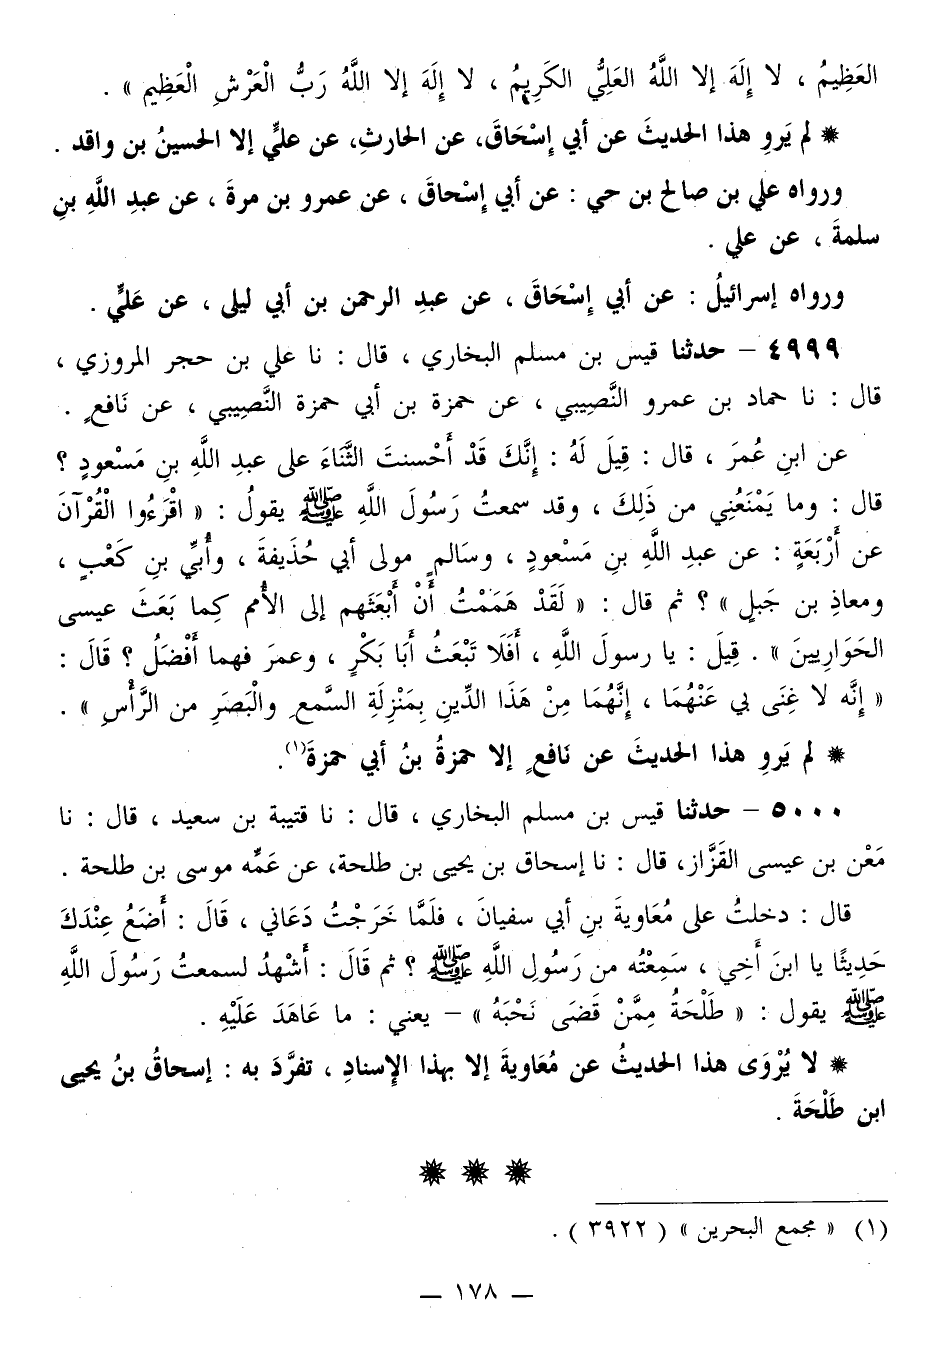 العَظِيمُ ، لا إِلَهَ إلا اللَّهُ العَلِيُّ الكَرِيمُ ، لا إِلَهَ إلا اللَّهُ رَبُّ الْعَرْشِ الْعَظِيمِ » .
* لم يَروِ هذا الحديثَ عن أبي إسْحَاقَ، عن الحارثِ، عن عليٍّ إلا الحسينُ بن واقد .
ورواه علي بن صالح بن حي : عن أبي إسْحاقَ ، عن عمرو بن مرةَ ، عن عبدِ اللَّهِ بنِ
سلمةَ ، عن علي .
ورواه إسرائيلُ : عن أبي إسْحَاقَ ، عن عبدِ الرحمن بن أبي ليلى ، عن عَليٍّ .
٤٩٩٩ – حدثنا قيس بن مسلم البخاري ، قال : نا علي بن حجر المروزي ،
قال : نا حماد بن عمرو النَّصِيبي ، عن حمزة بن أبي حمزة النَّصِيبي ، عن نَافعٍ .
عن ابنِ عُمرَ ، قال : قِيلَ لَهُ : إنَّكَ قَدْ أَحْسنتَ الثَّنَاءَ على عبدِ اللَّهِ بنِ مَسْعودٍ ؟
قال : وما يَمْنَعُنِي من ذَلِكَ ، وقد سمعتُ رَسُولَ اللَّهِ ﷺ يقولُ : « اقْرَءُوا الْقُرْآنَ
عن أَرْبَعَةٍ : عن عبدِ اللَّهِ بنِ مَسْعودٍ ، وسَالمٍ مولى أبي حُذَيفةَ ، وأُبيِّ بنِ كَعْبٍ ،
ومعاذِ بن جَبلٍ » ؟ ثم قال : « لَقَدْ هَمَمْتُ أَنْ أَبْعَثَهم إلى الأُمم كما بَعَثَ عيسى
الحَوَارِيينَ » . قِيلَ : يا رسولَ اللَّهِ ، أَفَلَا تَبْعَثُ أَبَا بَكْرٍ ، وعمرَ فهما أَفْضَلُ ؟ قَالَ :
« إنَّه لا غِنَى بي عَنْهُمَا ، إنَّهُمَا مِنْ هَذَا الدِّينِ بِمَنْزِلَةِ السَّمعِ والْبَصَرِ من الرَّأْسِ » .
* لم يَروِ هذا الحديثَ عن نَافعٍ إلا حمزةُ بنُ أبي حمزةَ(١).
٥٠٠٠ – حدثنا قيس بن مسلم البخاري ، قال : نا قتيبة بن سعيد ، قال : نا
مَعْن بن عيسى القَزَّاز، قال : نا إسحاق بن يحيى بن طلحة، عن عَمِّه موسى بن طلحة .
قال : دخلتُ على مُعَاويةَ بنِ أبي سفيانَ ، فلَمَّا خَرَجْتُ دَعَاني ، قَالَ : أَضَعُ عِنْدَكَ
حَدِيثًا يا ابنَ أخِي ، سَمِعْتُه من رَسُولِ اللَّهِ ﷺ ؟ ثم قَالَ : أَشْهدُ لسمعتُ رَسُولَ اللَّهِ
ﷺ يقول : « طَلْحَةُ مِمَّنْ قَضَى نَحْبَهُ » – يعني : ما عَاهَدَ عَلَيْهِ .
* لا يُرْوَى هذا الحديثُ عن مُعَاويةَ إلا بهذا الإسنادِ ، تفرَّدَ به : إسحاقُ بنُ يحيى
ابن طَلْحَةَ .
* * *
(١) « مجمع البحرين » ( ٣٩٢٢ ) .
– ١٧٨ –